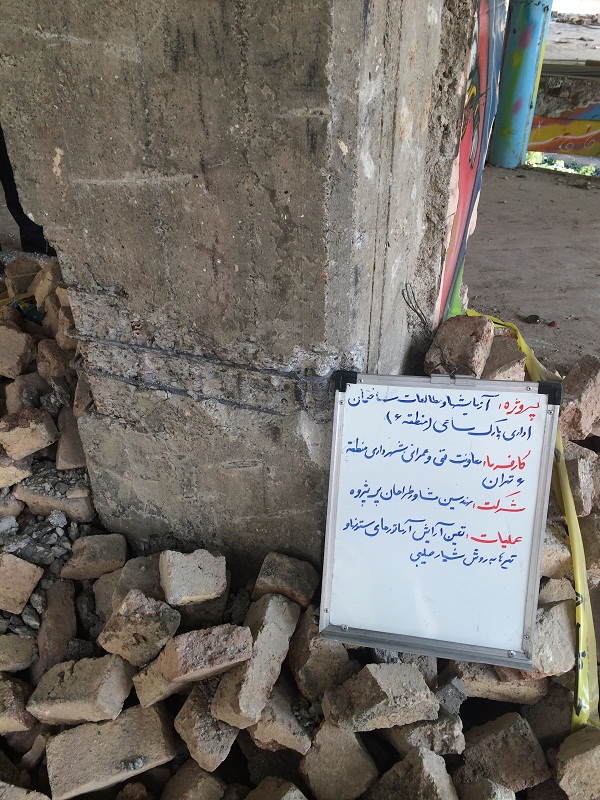 پروژه: آزمایشها و مطالعات ساختمان
اداری پارک ساعی (منطقه ۶)
کارفرما: معاونت فنی و عمرانی شهرداری منطقه
۶ تهران
شرکت: مهندسین مشاور طراحان پی پژوه
عملیات: تعیین آرایش آرماتورهای ستونها و
تیرها به روش شیار صلیبی